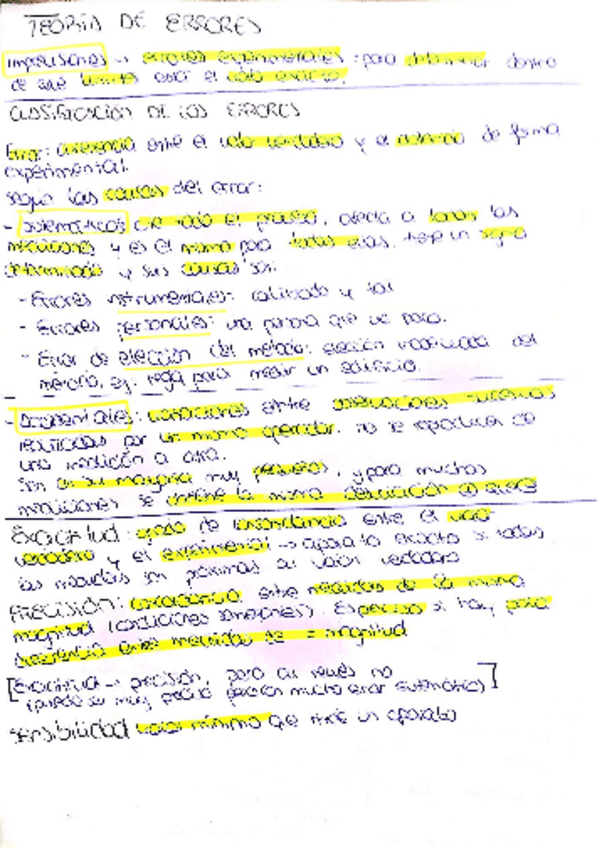 TEORÍA DE ERRORES
Imprecisiones → errores experimentales: para determinar dentro
de que limites está el valor exacto.
CLASIFICACIÓN DE LOS ERRORES
Error: diferencia entre el valor verdadero y el obtenido de forma
experimental.
Según las causas del error:
- Sistemáticos: todo el proceso, afecta a todas las
mediciones y es el mismo para todas ellas, tiene un signo
determinado y sus causas son:
- Errores instrumentales: calibrado y tal
- Errores personales: una persona que ve poco.
- Error de elección del método: elección inadecuada del
método, ej. regla para medir un edificio.
- Accidentales: variaciones entre observaciones sucesivas
realizadas por un mismo operador. no se reproducen de
una medición a otra.
Son en su mayoría muy pequeños, y para muchas
mediciones se obtiene la misma desviación
Exactitud: grado de concordancia entre el valor
verdadero y el experimental → aparato exacto si todas
las medidas son próximas al valor verdadero
PRECISIÓN: concordancia entre medidas de la misma
magnitud (condiciones semejantes). Es preciso si hay poca
diferencia entre medidas de = magnitud
[Exactitud → precisión, pero al revés no
(puede ser muy preciso pero con mucho error sistemático)]
Sensibilidad valor mínimo que mide un aparato